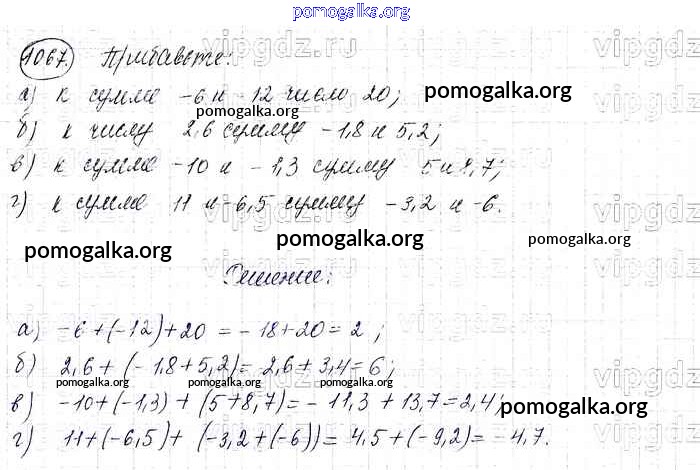 pomogalka.org
vipgdz.ru
1067. Прибавьте:
а) к сумме -6 и -12 число 20;
pomogalka.org
pomogalka.org
б) к числу 2,6 сумму -1,8 и 5,2;
в) к сумме -10 и -1,3 сумму 5 и 8,7;
г) к сумме 11 и -6,5 сумму -3,2 и -6.
pomogalka.org
pomogalka.org
pomogalka.org
Решение:
а) -6+(-12)+20 = -18+20=2;
б) 2,6+(-1,8+5,2)=2,6+3,4=6;
pomogalka.org
pomogalka.org
pomogalka.org
в) -10+(-1,3)+(5+8,7)=-11,3+13,7=2,4;
pomogalka.org
г) 11+(-6,5)+(-3,2+(-6))=4,5+(-9,2)=-4,7.